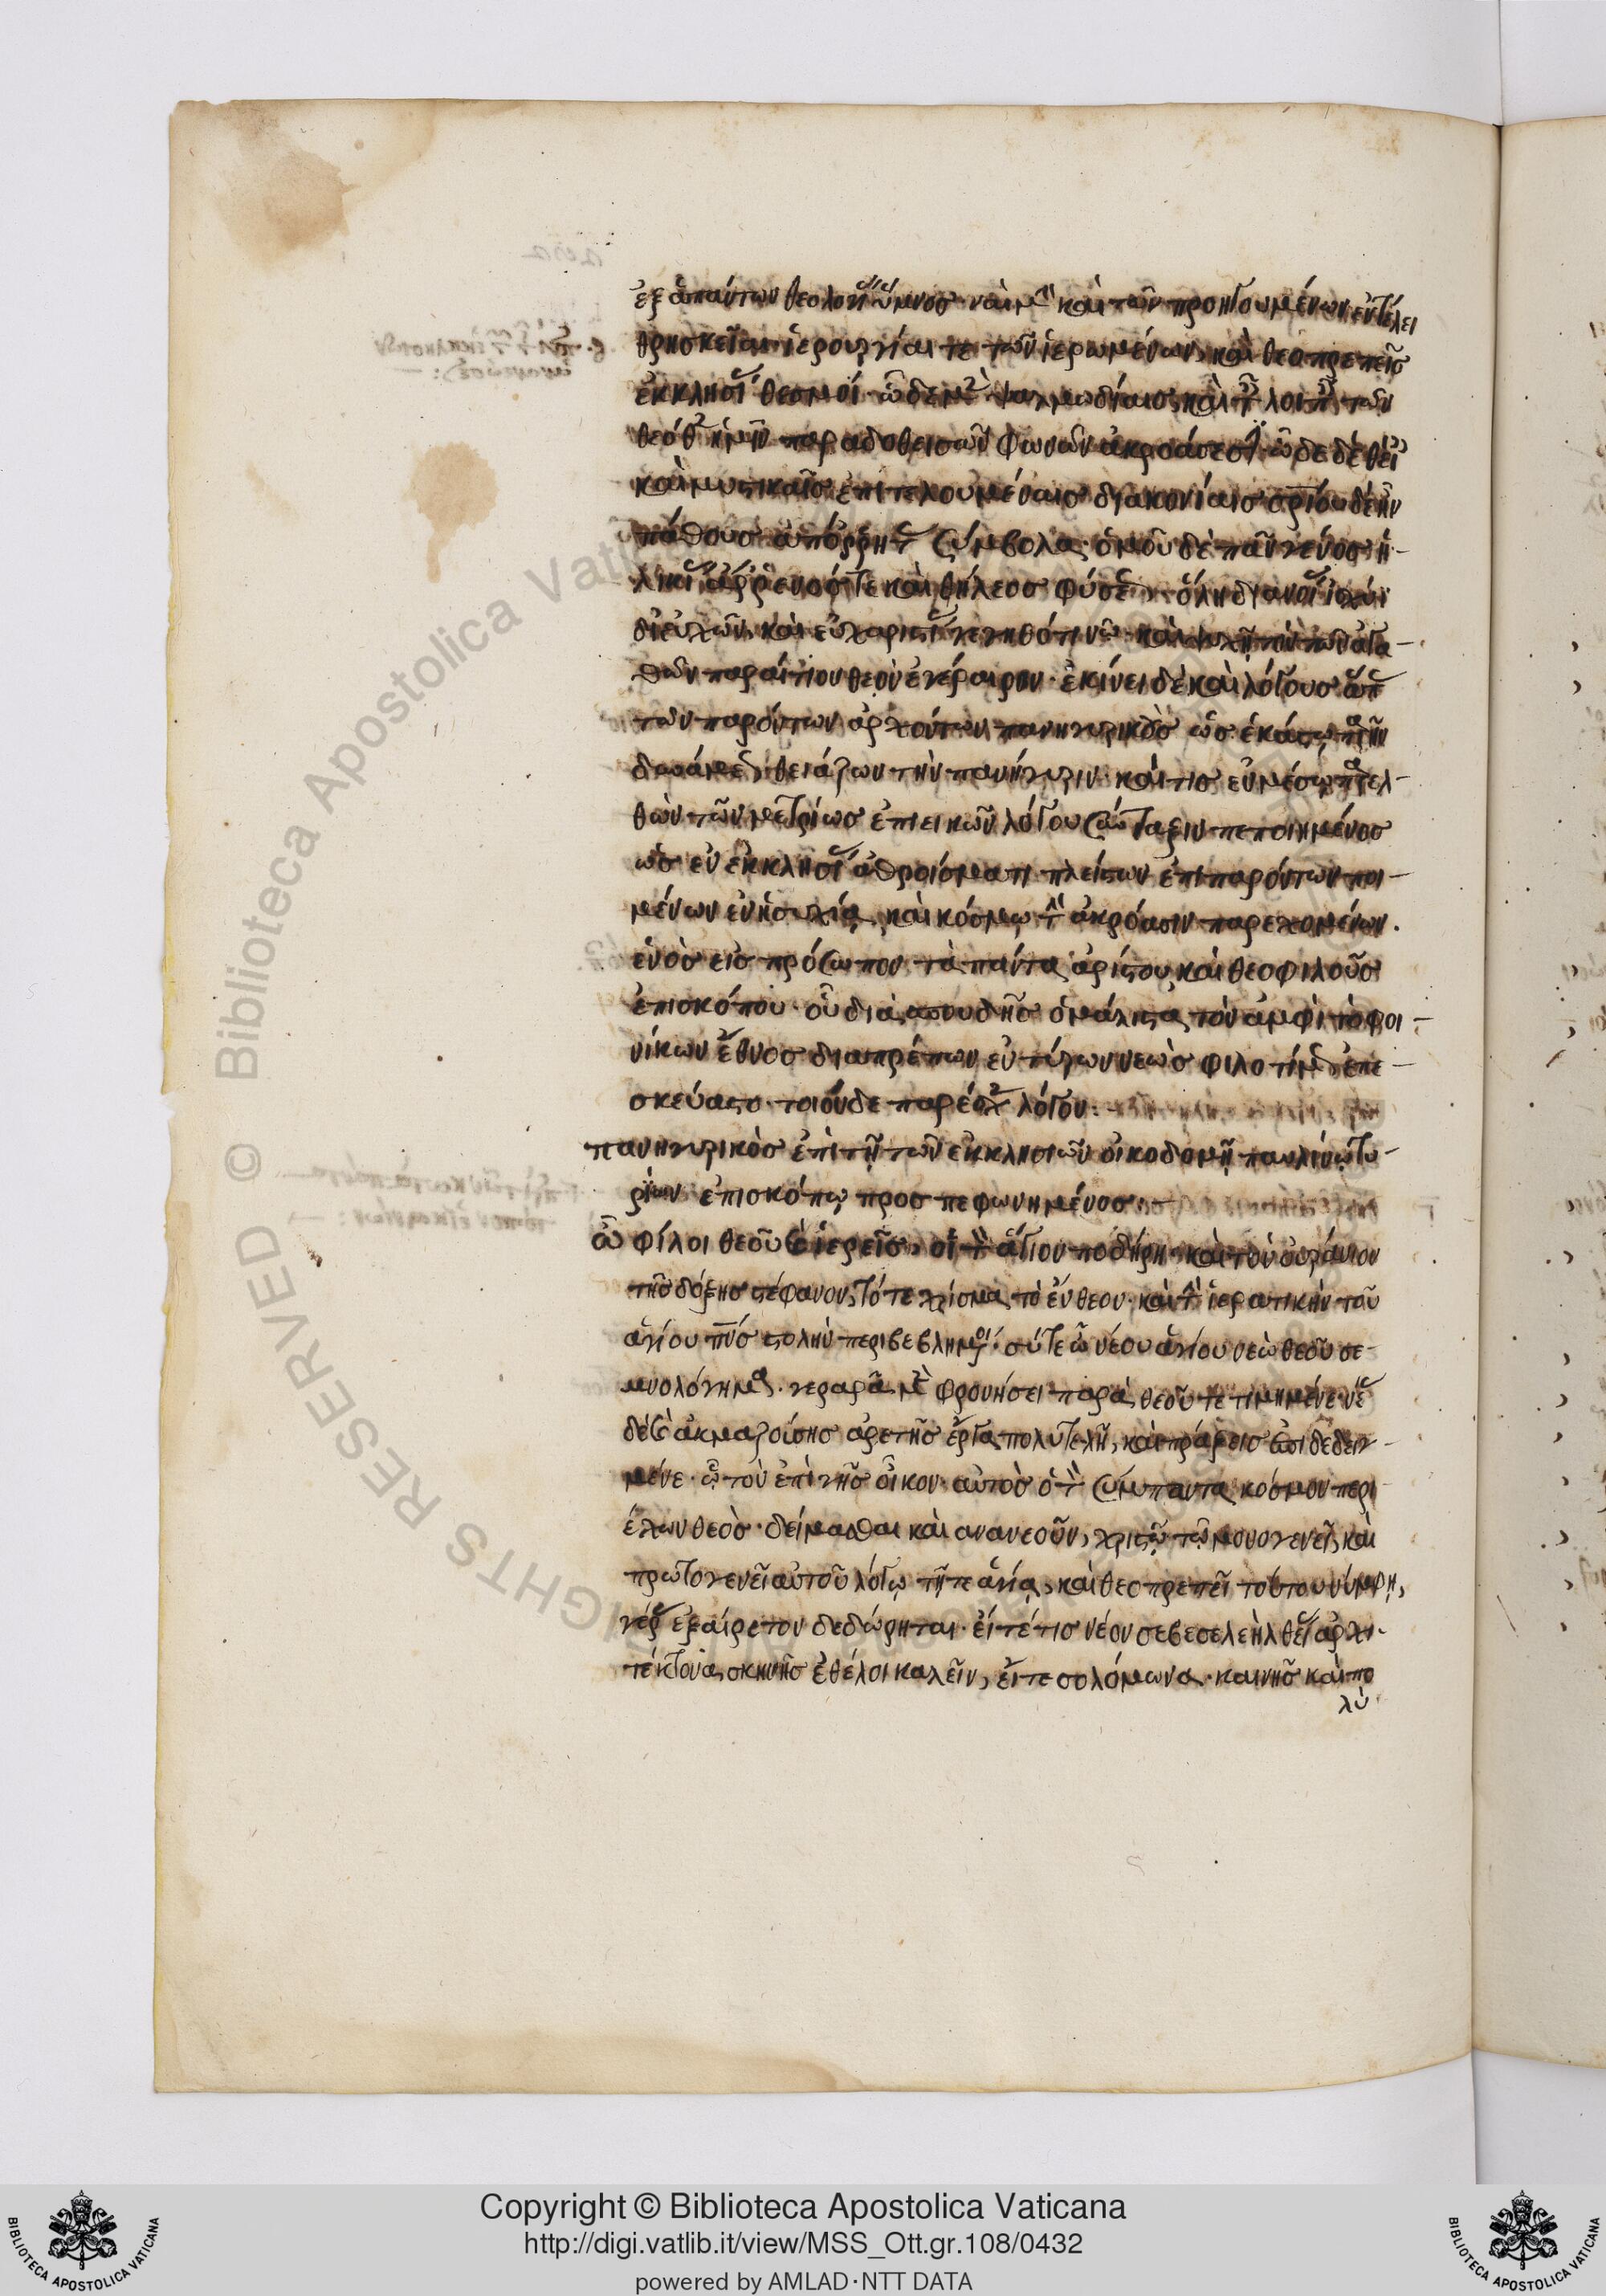 ἐξ ἁπάντων θεολογίας ὕμνος· ναὶ μὴν καὶ τῶν προηγουμένων ἐντελεῖ
θρησκεῖαι ἱερουργίαι τε τῶν ἱερωμένων, καὶ θεοπρεπεῖς
ἐκκλησίας θεσμοί· ὧδε μὲν ψαλμωδίαις, καὶ ταῖς λοιπαῖς τῶν
θεόθεν ἡμῖν παραδοθεισῶν φωνῶν ἀκροάσεσιν· ὧδε δὲ θείαις
καὶ μυστικαῖς ἐπιτελουμέναις διακονίαις σρίου δὲ ἦν
πάθους ἀπόρρητα σύμβολα· ὁμοῦ δὲ πᾶν γένος ἡ-
λικίας ἄρρενός τε καὶ θήλεος φύσεως· ὅλη διανοίας ἰσχύϊ
δι' εὐχῶν, καὶ εὐχαριστίας γεγηθότι νῶ· καὶ ψυχῆ τὸν τῶν ἀγα-
θῶν παραίτιον θεὸν ἐγέραιρον· ἐκίνει δὲ καὶ λόγους ἅπας
τῶν παρόντων ἀρχόντων πανηγυρικοὺς ὡς ἑκάστω παρῆν
δυνάμεως θειάζων τὴν πανήγυριν· καί τις ἐν μέσω παρελ-
θὼν τῶν μετρίως ἐπιεικῶν λόγου σύνταξιν πεποιημένος
ὡς ἐν ἐκκλησίας ἀθροίσματι πλείστων ἐπιπαρόντων ποι-
μένων ἐν ἡσυχία, καὶ κόσμω τὴν ἀκρόασιν παρεχομένων.
ἑνὸς εἰς πρόσωπον τὰ πάντα ἀρίστου, καὶ θεοφιλοῦς
ἐπισκόπου· οὗ διὰ σπουδῆς ὁ μάλιστα τὸν ἀμφὶ τὸ φοι-
νίκων ἔθνος διαπρέπων ἐν τύρω νεὼς φιλοτίμως ἐπε-
σκεύαστο· τοιόνδε παρέσχε λόγον:
πανηγυρικὸς ἐπὶ τῆ τῶν ἐκκλησιῶν οἰκοδομῆ παυλίνω τυ-
ρίων ἐπισκόπω προσπεφωνημένος:-
ὦ φίλοι θεοῦ καὶ ἱερεῖς, οἱ τὸν ἅγιον ποδήρη· καὶ τὸν οὐράνιον
τῆς δόξης στέφανον, τό τε χρίσμα, τὸ ἔνθεον· καὶ τὴν ἱερατικὴν τοῦ
ἁγίου πνς στολὴν περιβεβλημένοι· σύ τε ὦ νέου ἁγίου νεὼ θεοῦ σε-
μνολόγημα· γεραρᾶ μὲν φρονήσει παρὰ θεοῦ τετιμημένε· νέας
δὲ καὶ ἀκμαζούσης ἀρετῆς ἔργα πολυτελῆ, καὶ πράξεις ἐπιδεδειγ-
μένε· ὧ τὸν ἐπὶ γῆς οἶκον· αὐτὸς ὁ τὸν σύμπαντα κόσμον περι
έχων θεὸς· δείμασθαι καὶ ανανεοῦν, χριστῶ τῶ μονογενεῖ, καὶ
πρωτογενεῖ αὐτοῦ λόγω, τῆ τε ἁγία, καὶ θεοπρεπεῖ τούτου νύμφη,
γέρας ἐξαίρετον δεδώρηται· εἴτέ τις νέον σε βεσελεὴλ θείας ἀρχι-
τέκτονα, σκηνῆς ἐθέλοι καλεῖν, εἴτε σολόμωνα· καινῆς καὶ πο
λὺ